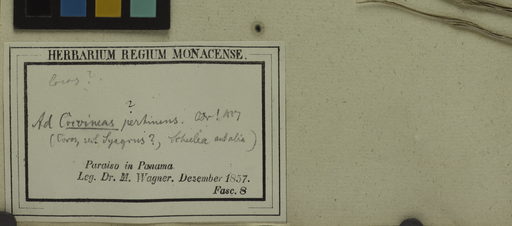 HERBARIUM REGIUM MONACENSE.
Cocos?
?
Ad Cocoineas pertinens.
(Cocos, vel Syagrus?, Scheelea aut alia)
Paraiso in Panama
Leg. Dr. M. Wagner, Dezember 1857.
Fasc. 8